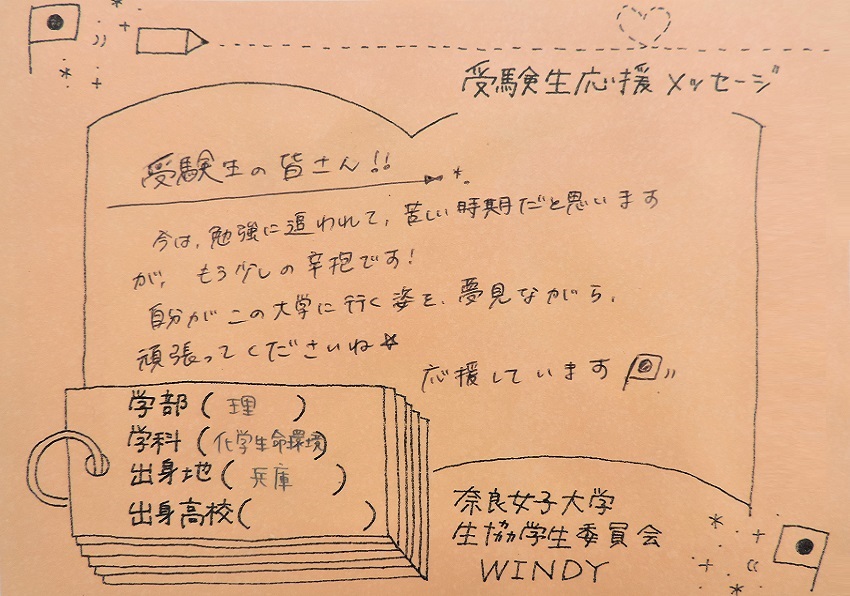 受験生応援メッセージ
受験生の皆さん!!
今は、勉強に追われて、苦しい時期だと思います
が、もう少しの辛抱です!
自分がこの大学に行く姿を、夢見ながら、
頑張ってくださいね☆
応援しています
学部(理)
学科(化学生命環境)
出身地(兵庫)
出身高校( )
奈良女子大学
生協学生委員会
WINDY